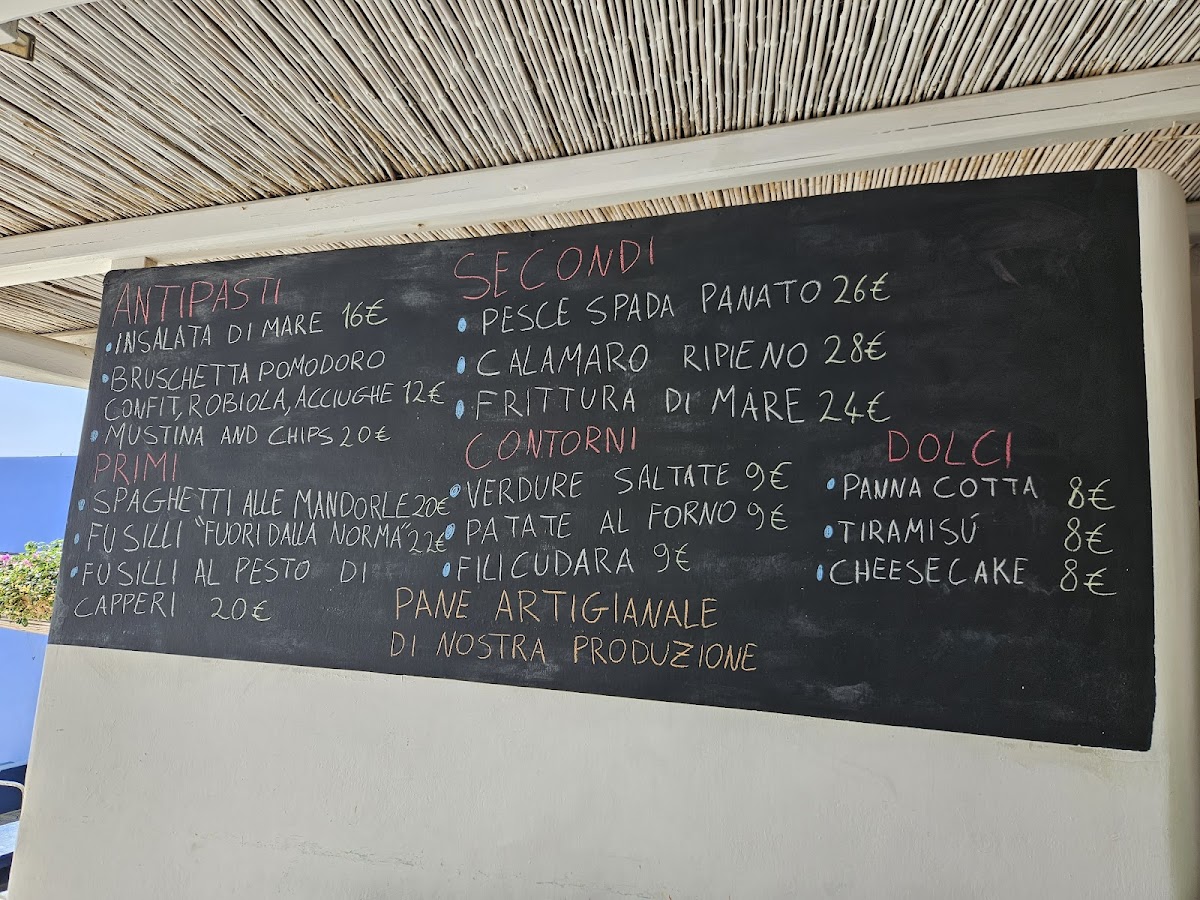 ANTIPASTI
INSALATA DI MARE 16€
BRUSCHETTA POMODORO
CONFIT, ROBIOLA, ACCIUGHE 12€
MUSTINA AND CHIPS 20€
PRIMI
SPAGHETTI ALLE MANDORLE 20€
FUSILLI "FUORI DALLA NORMA" 22€
FUSILLI AL PESTO DI
CAPPERI 20€
SECONDI
PESCE SPADA PANATO 26€
CALAMARO RIPIENO 28€
FRITTURA DI MARE 24€
CONTORNI
VERDURE SALTATE 9€
PATATE AL FORNO 9€
FILICUDARA 9€
DOLCI
PANNA COTTA 8€
TIRAMISÚ 8€
CHEESECAKE 8€
PANE ARTIGIANALE
DI NOSTRA PRODUZIONE